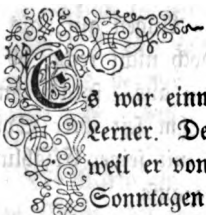 Es war einm
Lerner. De
weil er von
Sonntagen